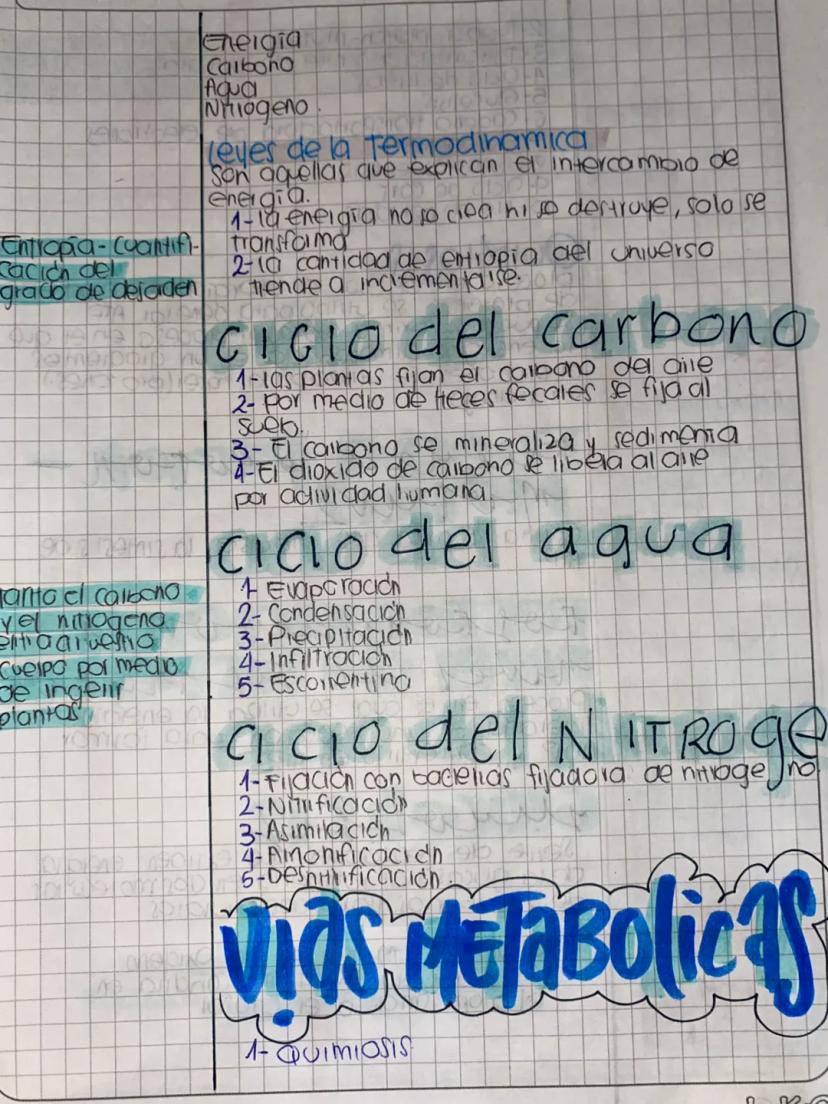 Energia
Carbono
Agua
Nitrogeno.
Leyes de la Termodinamica
son aquellas que explican el intercambio de
energia.
1- la energia no se crea ni se destruye, solo se
transforma
2- la cantidad de entropia del universo
tiende a incrementarse.
Entropia - cuantifi-
cación del
grado de desorden
Ciclo del carbono
1- las plantas fijan el carbono del aire
2- por medio de heces fecales se fija al
suelo.
3- El carbono se mineraliza y sedimenta
4- El dioxido de carbono se libera al aire
por actividad humana.
Ciclo del agua
1- Evaporación
2- Condensación
3- Precipitación
4- Infiltración
5- Escorrentina
tanto el carbono
y el nitrogeno
entra a nuestro
cuerpo por medio
de ingerir
plantas
Ciclo del NITROge
no
1- Fijación con bacterias fijadora de nitrogeno
2- Nitrificación
3- Asimilación
4- Amonificación
5- Desnitrificación.
Vías METaBolicas
1- Quimiosis